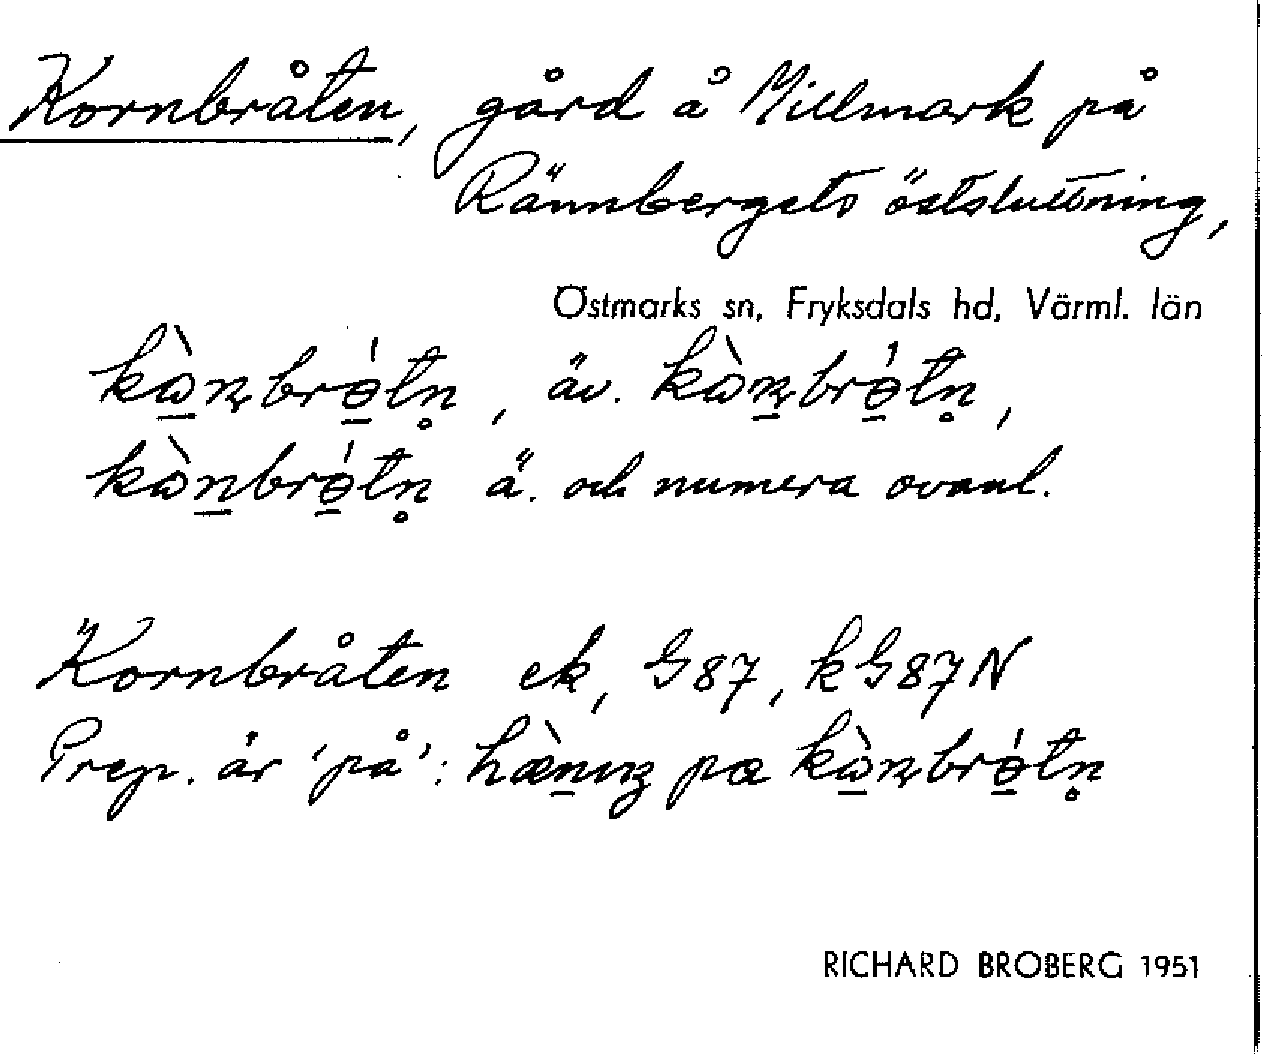 Kornbråten, gård å Millmark på
Rännbergets östsluttning,
Östmarks sn, Fryksdals hd, Värml. län
kὼɳbrɵ́tn̥, äv. kὼɳbrɵ́tn̥,
kὼnbrɵ́tn̥ ä. och numera ovanl.
Kornbråten ek, G87, kG87N
Prep. är 'på': hæ̀nıɳ pæ kὼɳbrɵ́tn̥
RICHARD BROBERG 1951